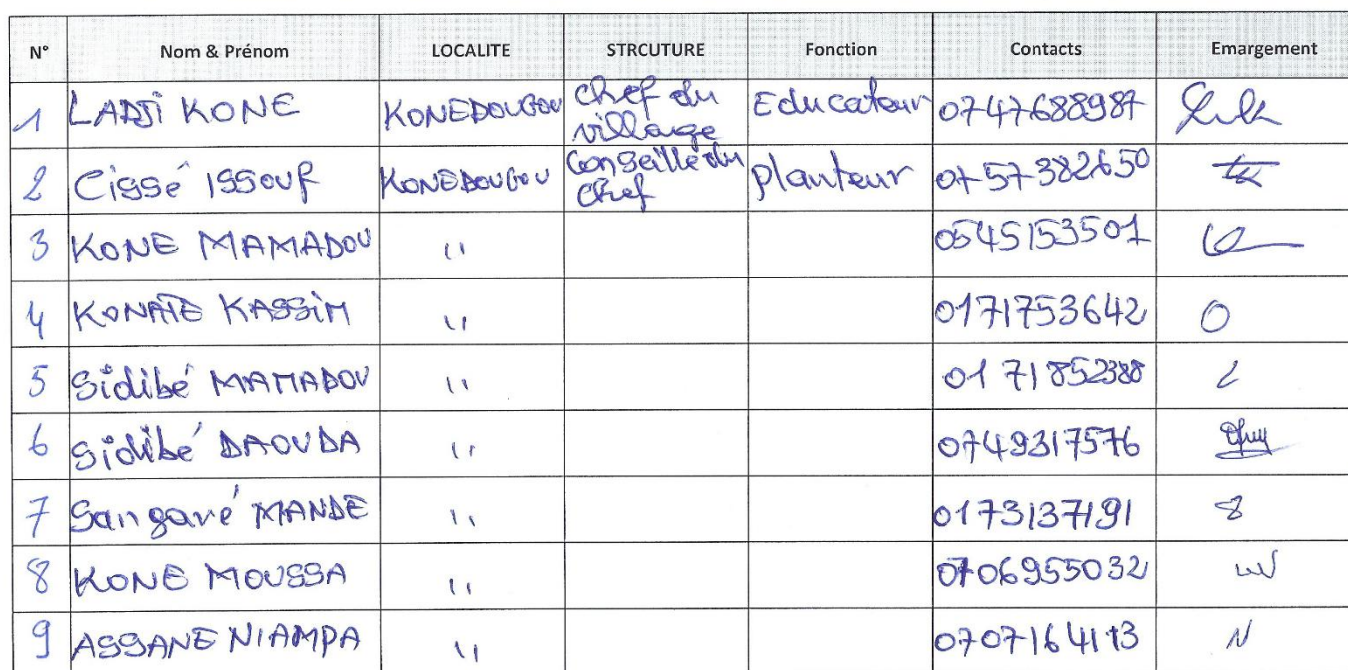 N° Nom & Prénom LOCALITE STRCUTURE Fonction Contacts Emargement
1 LADJI KONE KONEDOUGOU Chef du village Educateur 0747688987
2 Cissé ISSOUF KONEDOUGOU Conseillé du Chef planteur 0757382650
3 KONE MAMADOU " 0545153501
4 KONATE KASSIM " 0171753642
5 Sidibé MAMADOU " 0171852388
6 Sidibé DAOUDA " 0749317576
7 Sangaré MANDE " 0173137191
8 KONE MOUSSA " 0706955032
9 ASSANE NIAMPA " 0707164113